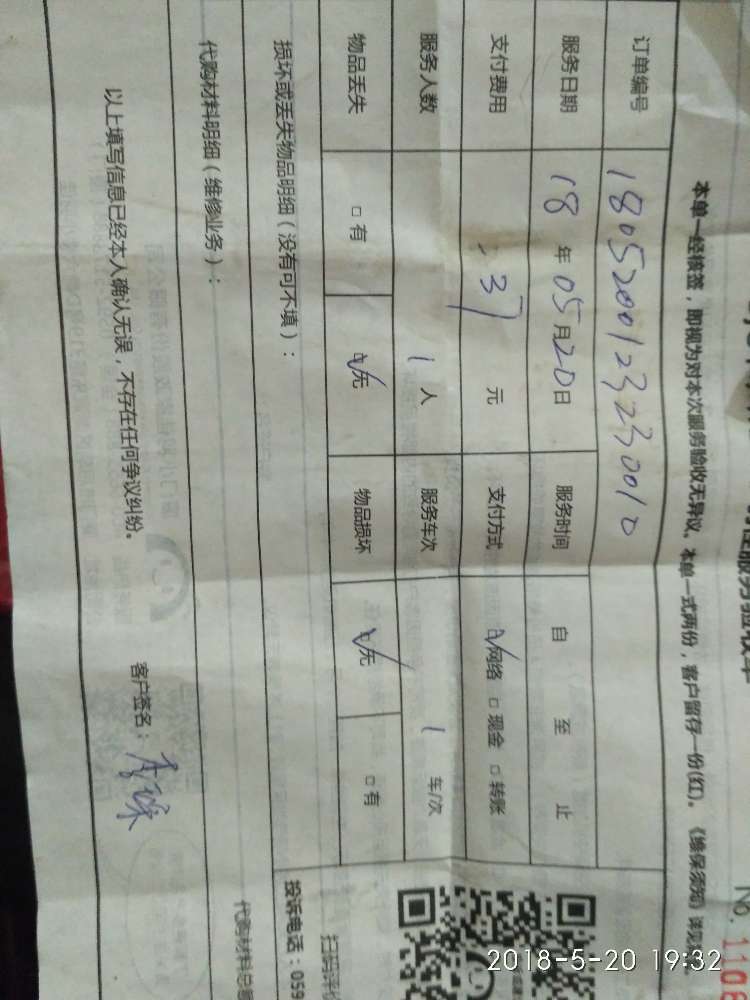 服务验收单
No. 1108
本单一经核签，即视为对本次服务验收无异议。本单一式两份，客户留存一份(红)。《维保须知》详见
订单编号 1805200123230010
服务日期 18 年 05 月 20 日 服务时间 自 至 止
支付费用 37 元 支付方式 ☑网络 □现金 □转账
服务人数 1 人 服务车次 1 车/次
物品丢失 □有 ☑无 物品损坏 ☑无 □有
扫码评价
损坏或丢失物品明细（没有可不填）：
投诉电话：059
代购材料明细（维修业务）：
代购材料总额
以上填写信息已经本人确认无误，不存在任何争议纠纷。
客户签名：
2018-5-20 19:32